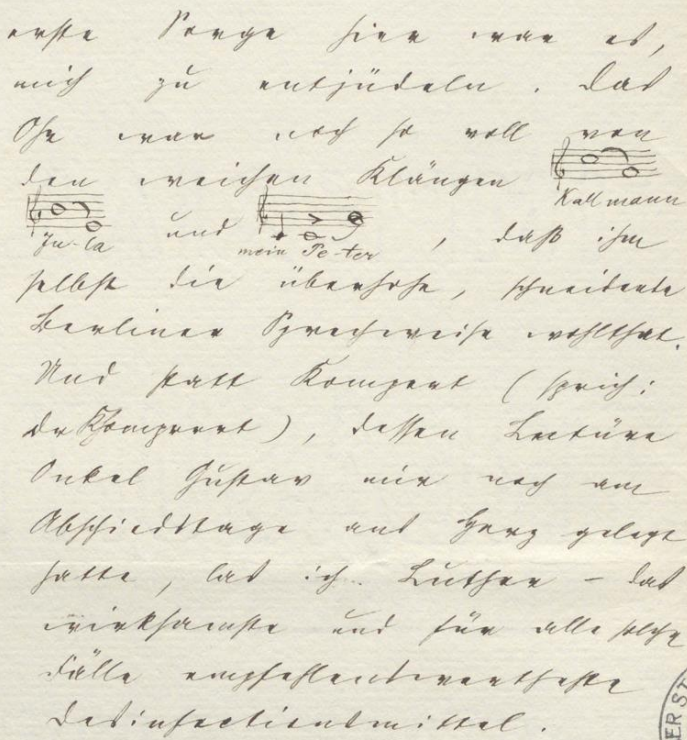 erste Sorge hier war es,
mich zu entjüdeln. Das
Ohr war noch so voll von
den weichen Klängen
Kallmann
Ju-la und mein Pe-ter, daß ihm
selbst die überhohe, schneidente
Berliner Sprechweise wohlthat.
Und statt Kompert (sprich:
), dessen Lectüre
Onkel Gustav mir noch am
Abschiedstage ans Herz gelegt
hatte, las ich Luther – das
wirksamste und für alle solche
Fälle empfehlenswertheste
Desinfectionsmittel.
ER ST